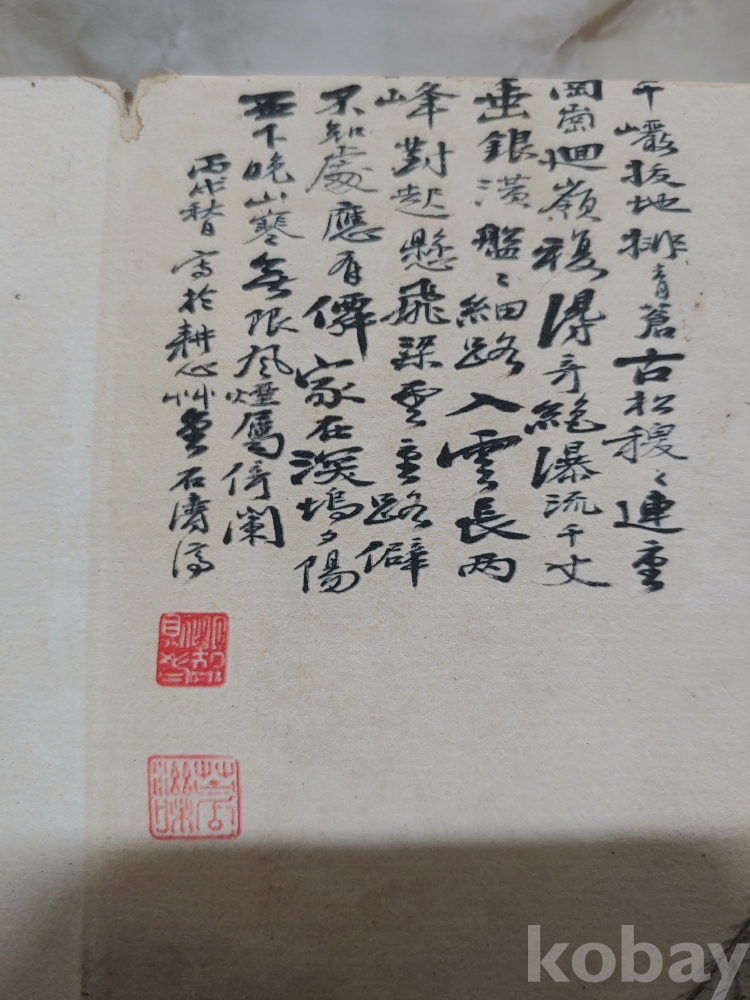 千巖拔地排青蒼古松稷〻連重
岡崗迴嶺複得奇絕瀑流千丈
垂銀潢盤〻細路入雲長兩
峰對起懸飛梁雲重路僻
不知處應有僊家在深塢夕陽
西下晚山寒無限風煙屬倚闌
丙戌春寫於耕心艸堂石濤濟
kobay